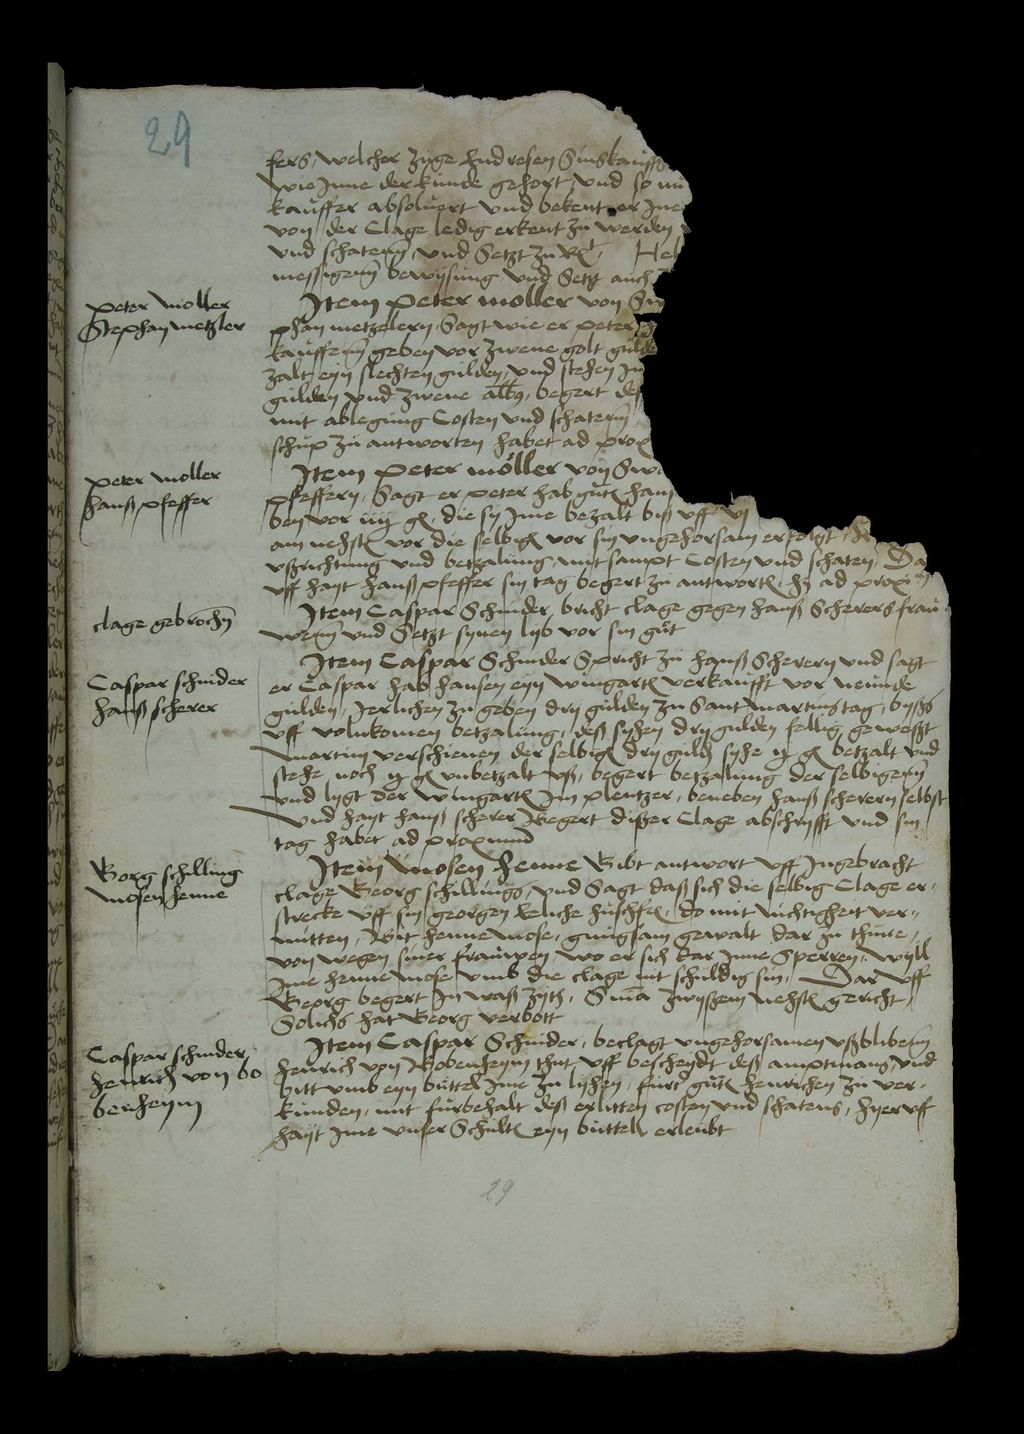 29
fers, welcher züge Endresen Sinskauff
wie Inne der kunde gehort, und so nu
kauffer absoluert und bekent er Ine
von der Clage ledig erkent zu werden
und schatenn, und Setzt zu Rt, Hel
messigenn bewysung und Setzt auch
peter moller
Stephan metzler
Item peter moller von Sw
phan metzelern, Sagt wie er peter
kauffenn geben vor zwene golt gulde
zalt eyn slechten gulden, und stehen In
gulden und zwene albg, begert des
mit ablegung Costen und schatenn
schup zu antworten habet ad prox
peter moller
hanß pfeffer
Item peter möller von Swa
pfeffern, Sagt er peter hab gut hans
ben vor iiij g, die sy Ime bezalt biß uff vj
am nehst vor die selbig vor sin ungehorsam erfolgt
ußrichtung und betzalung, mit sampt Costen und schaten, Da
uff hayt hanß pfeffer sin tag begert zu antwort, hz ad proxi
clage gebrochn
Item Caspar Schnider, bricht clage gegen hanß Scherers frau
wenn und Setzt synen lyb vor sin gut
Caspar schnider
hanß scherer
Item Caspar Schnider Spricht zu hanß Scherern und sagt
er Caspar hab hansen eyn wingart verkaufft vor neunde
gulden, Jerlichen zu geben dry gulden zu Sant martins tag, byßs
uff volnkomen betzalung, deß syhen dry gulden fellig geweßt
martini verschienen der selbig dry guld syhe ij g betzalt und
stehe noch ij g unbetzalt uß, begert betzalung der selbigenn
und lygt der wingart Im plentzer, beneben hanß scherern selbst
Und hayt hanß scherer Begert dißer Clage abschryfft und sin
tag habet ad proximum
Gorg schilling
mosen henne
Item mosen henne Gibt antwort uff Ingebracht
clage Georg schillings, und Sagt daß sich die selbig Clage er-
strecke uff sin georgen Eliche hußfr, do mit nichtigheit ver-
mitten, Bit henne mose, gnugsam gewalt dar zu thune,
von wegen siner frauwen, wo er sich dar Inne Sperren, wyll
Ime henne mose umb die clage nit schuldig sin, Dar uff
Georg begert In waß zyth, Sma zwyßzem nehst gericht,
Solichs hat Georg verbott
Caspar schnider
henrich von bo
benheym
Item Caspar Schnider, beclagt ungehorsamen ußblibenn
henrich von Bobenheym thut uff bescheydt deß amptmans, und
bitt umb eyn büttel Ime zu lyhen, furt gut henrichen zu ver-
kunden, mit furbehalt deß erlitten costen und schatens, hyer uf
hayt Ime unser Schult eyn büttel erleubt
29